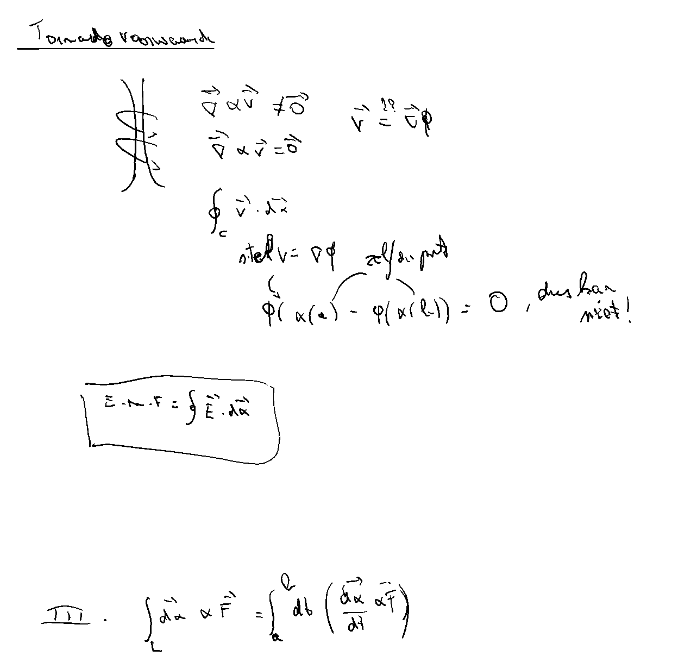 Tornado voorwaarde
∇⃗ × v⃗ ≠ 0⃗
v⃗ =?? ∇⃗φ
∇⃗ × v⃗ = 0⃗
∮_c v⃗ · dα⃗
stel v = ∇φ zelfde punt
φ(α(a) - φ(α(b)) = 0, dus kan
niet!
E.M.F = ∮ E⃗ · dα⃗
III. ∫_L dα⃗ × F⃗ = ∫_a^b dt (dα⃗/dt × F⃗)